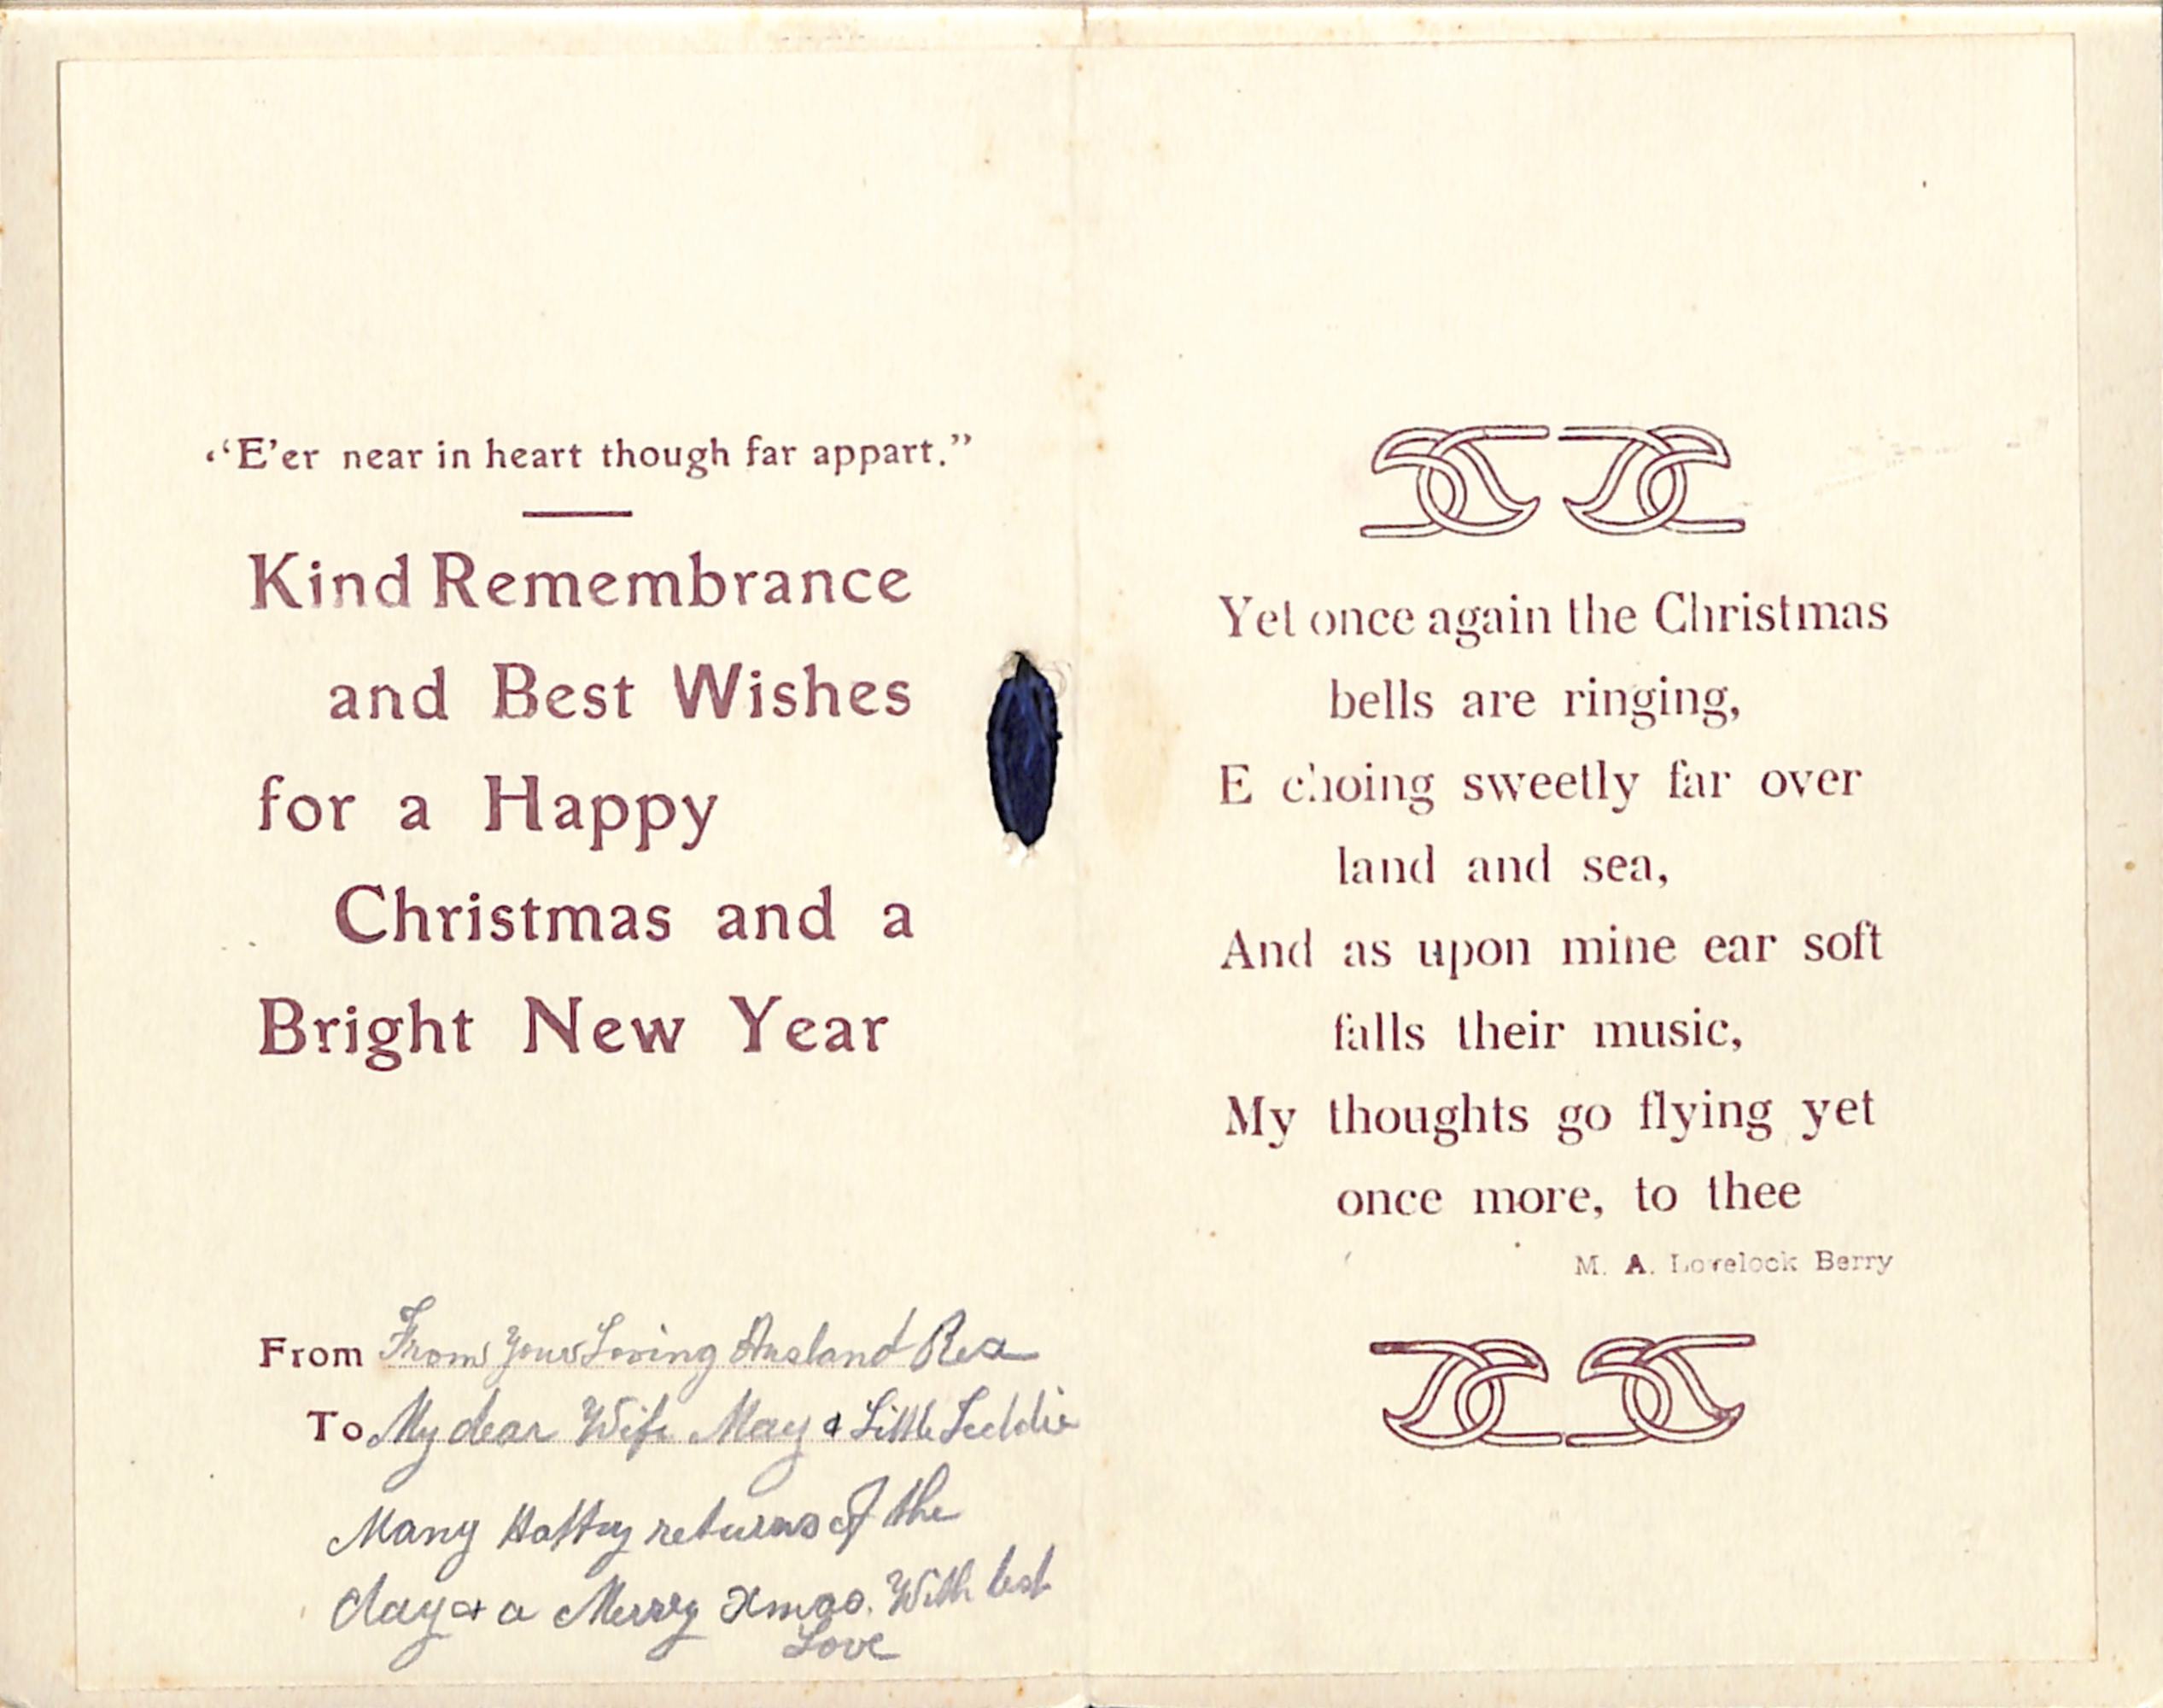 "E'er near in heart though far appart."
Kind Remembrance
and Best Wishes
for a Happy
Christmas and a
Bright New Year
From From Your Loving Husband Rex
To My dear Wife May & Little Teddie
Many Happy returns of the
day & a Merry Xmas. With best
Love
Yet once again the Christmas
bells are ringing,
E choing sweetly far over
land and sea,
And as upon mine ear soft
falls their music,
My thoughts go flying yet
once more, to thee
M. A. Lovelock Berry